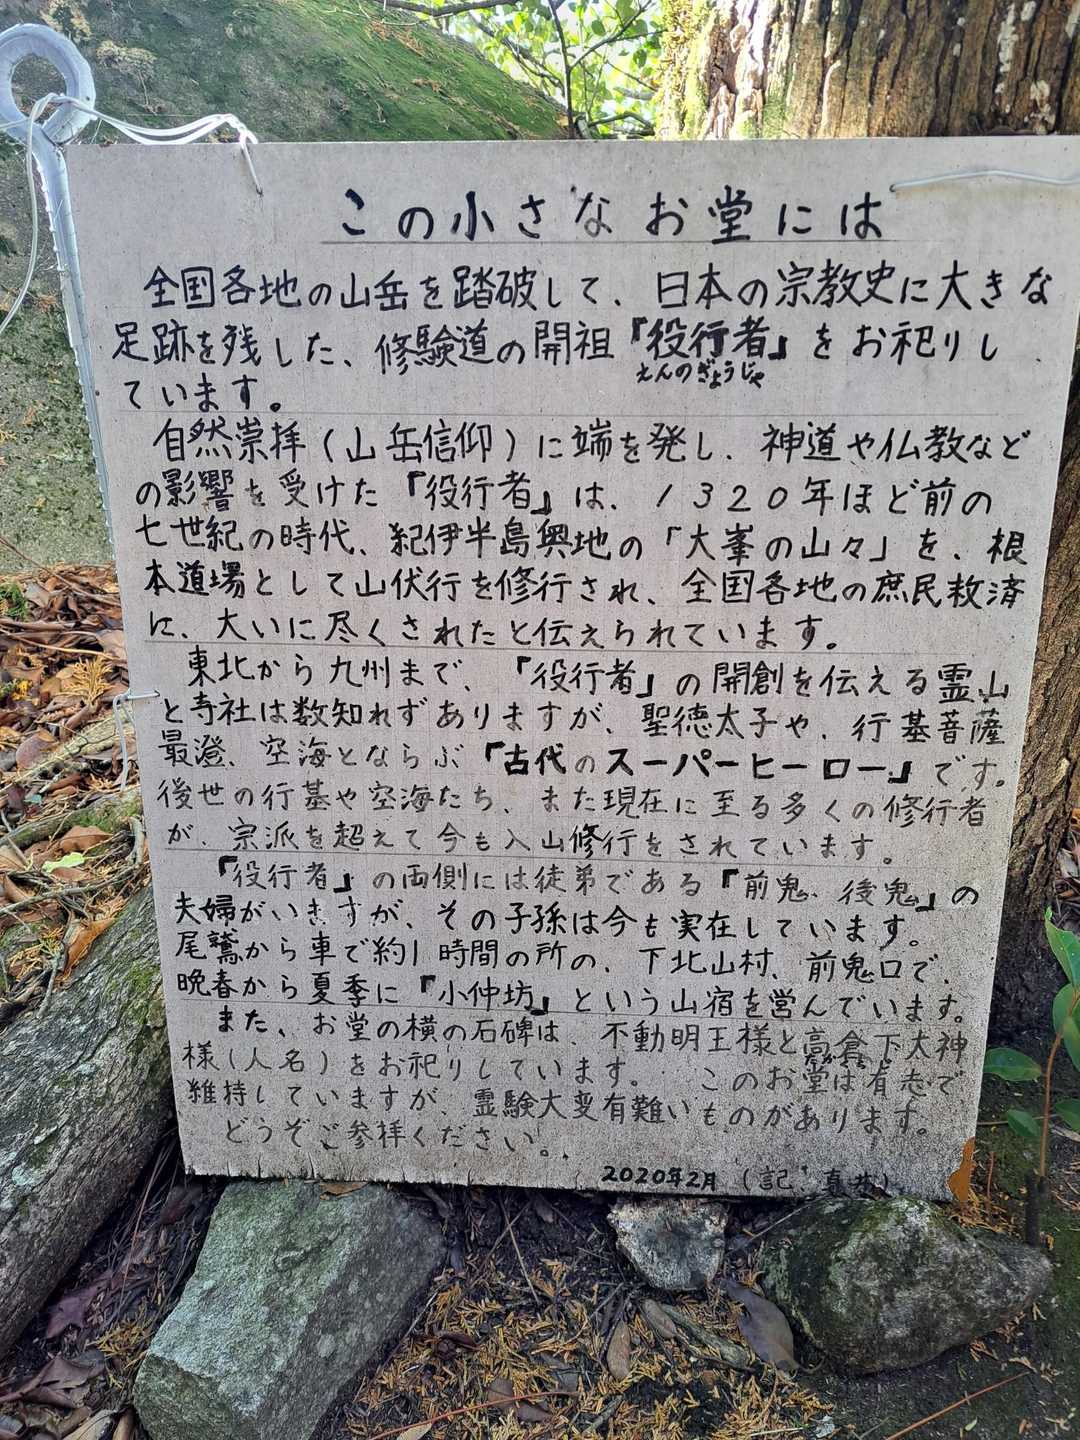 この小さなお堂には
全国各地の山岳を踏破して、日本の宗教史に大きな
足跡を残した、修験道の開祖『役行者』をお祀りし
えんのぎょうじゃ
ています。
自然崇拝(山岳信仰)に端を発し、神道や仏教など
の影響を受けた『役行者』は、1320年ほど前の
七世紀の時代、紀伊半島奥地の「大峯の山々」を、根
本道場として山伏行を修行され、全国各地の庶民救済
に、大いに尽くされたと伝えられています。
東北から九州まで、『役行者』の開創を伝える霊山
と寺社は数知れずありますが、聖徳太子や、行基菩薩
最澄、空海とならぶ『古代のスーパーヒーロー』です。
後世の行基や空海たち、また現在に至る多くの修行者
が、宗派を超えて今も入山修行をされています。
『役行者』の両側には徒弟である『前鬼、後鬼』の
夫婦がいますが、その子孫は今も実在しています。
尾鷲から車で約1時間の所の、下北山村、前鬼口で、
晩春から夏季に『小仲坊』という山宿を営んでいます。
また、お堂の横の石碑は、不動明王様と高倉下大神
たかくらじ
様(人名)をお祀りしています。 このお堂は有志で
維持していますが、霊験大変有難いものがあります。
どうぞご参拝ください。
2020年2月(記:真井)